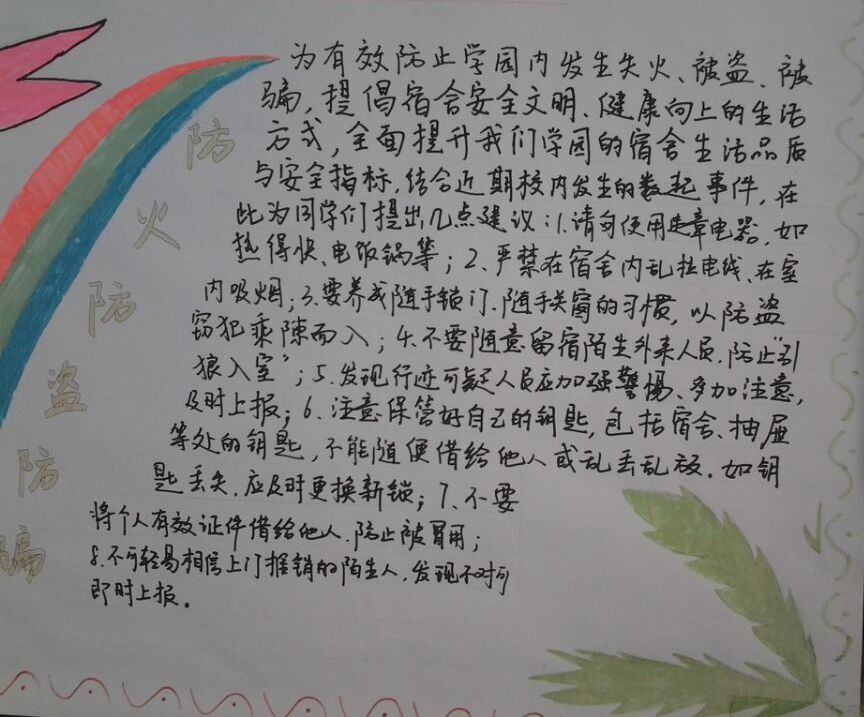 防火防盗防骗
为有效防止学园内发生失火、被盗、被
骗，提倡宿舍安全文明、健康向上的生活
方式，全面提升我们学园的宿舍生活品质
与安全指标，结合近期校内发生的数起事件，在
此为同学们提出几点建议：1.请勿使用违章电器，如
热得快、电饭锅等；2、严禁在宿舍内乱拉电线、在室
内吸烟；3.要养成随手锁门、随手关窗的习惯，以防盗
窃犯乘隙而入；4.不要随意留宿陌生外来人员，防止“引
狼入室”；5、发现行迹可疑人员应加强警惕、多加注意，
及时上报；6、注意保管好自己的钥匙，包括宿舍、抽屉
等处的钥匙，不能随便借给他人或乱丢乱放．如钥
匙丢失，应及时更换新锁；7、不要
将个人有效证件借给他人，防止被冒用；
8.不可轻易相信上门推销的陌生人，发现不对可
即时上报。